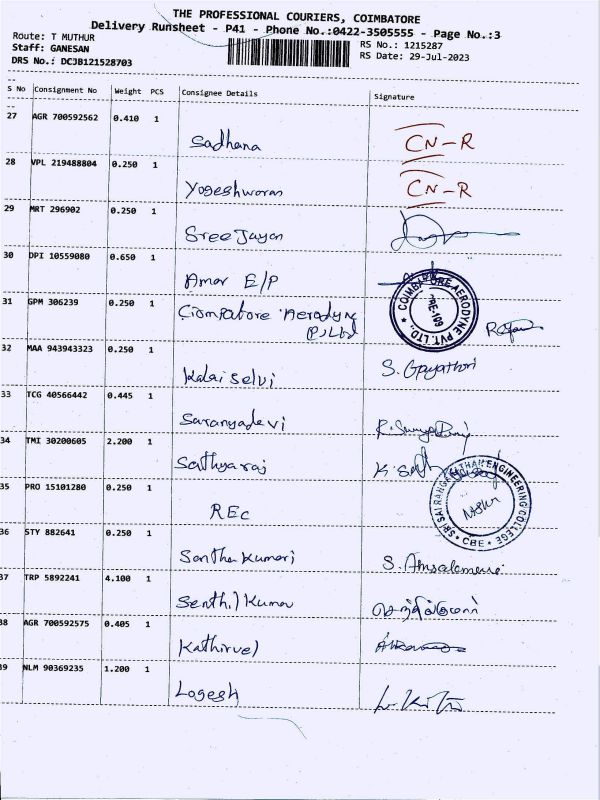 THE PROFESSIONAL COURIERS, COIMBATORE
Delivery Runsheet - P41 - Phone No.:0422-3505555 - Page No.:3
Route: T MUTHUR RS No.: 1215287
Staff: GANESAN RS Date: 29-Jul-2023
DRS No.: DCJB121528703
S No Consignment No Weight PCS Consignee Details Signature
27 AGR 700592562 0.410 1
Sadhana CN-R
28 VPL 219488804 0.250 1
Yogeshwaran CN-R
29 MRT 296902 0.250 1
Sree Jayan
30 DPI 10559080 0.650 1
Amar E/P
31 GPM 306239 0.250 1
Coimbatore Aerodyne
P. Ltd
COIMBATORE AERODYNE PVT. LTD.,
PRE-109
32 MAA 943943323 0.250 1
Kalai selvi S. Gayathri
33 TCG 40566442 0.445 1
Saranyadevi
34 TMI 30200605 2.200 1
Sathyaraj
35 PRO 15101280 0.250 1
REC
SRI SAI RANGANATHAN ENGINEERING COLLEGE
CBE
36 STY 882641 0.250 1
Santha Kumari
37 TRP 5892241 4.100 1
Senthil Kumar
38 AGR 700592575 0.405 1
Kathirvel
39 NLM 90369235 1.200 1
Logesh